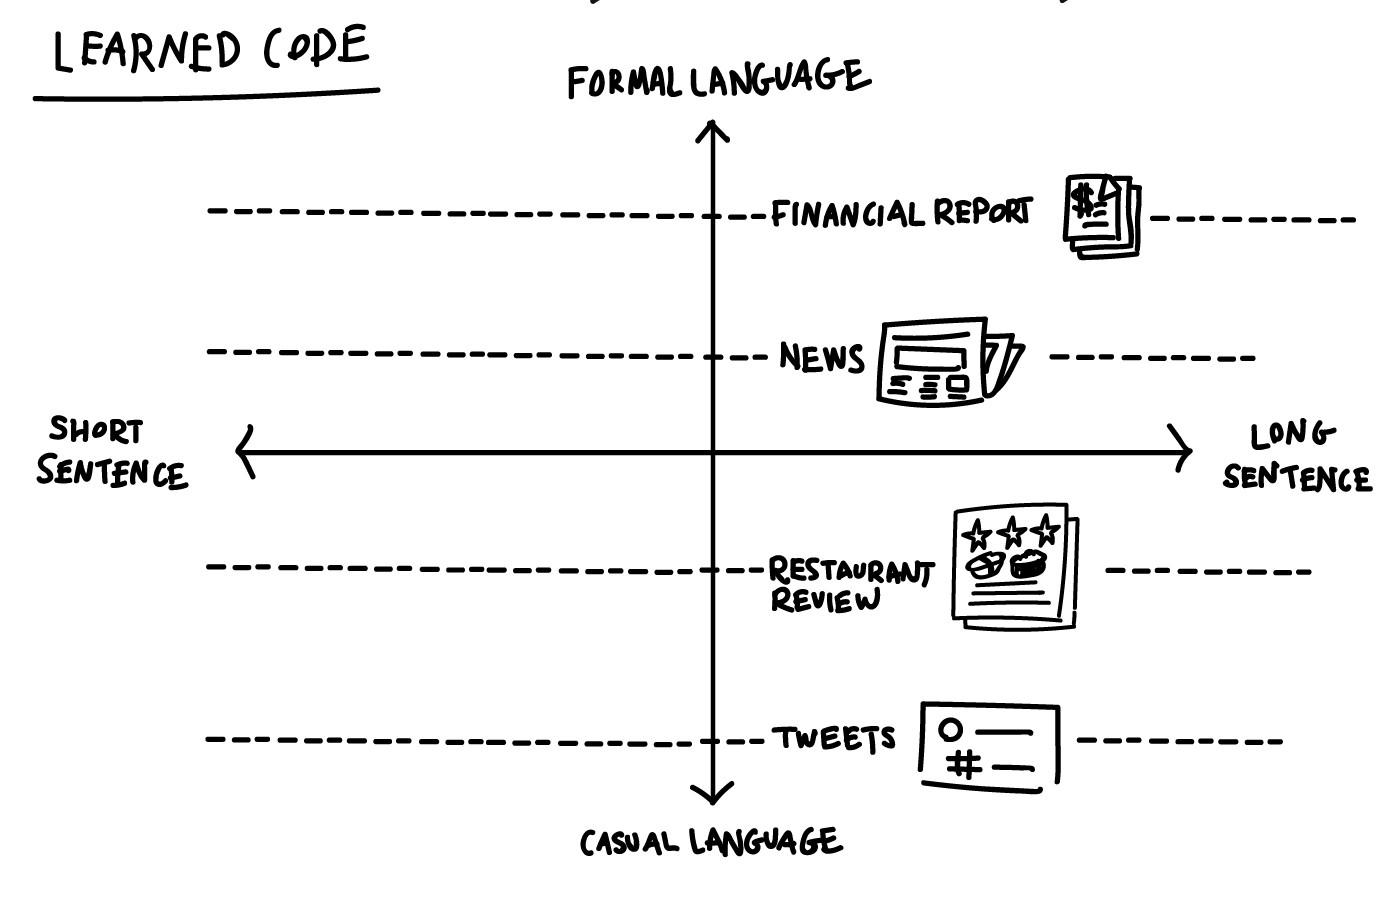 LEARNED CODE
FORMAL LANGUAGE
FINANCIAL REPORT
$
NEWS
SHORT
SENTENCE
LONG
SENTENCE
RESTAURANT
REVIEW
TWEETS
#
CASUAL LANGUAGE